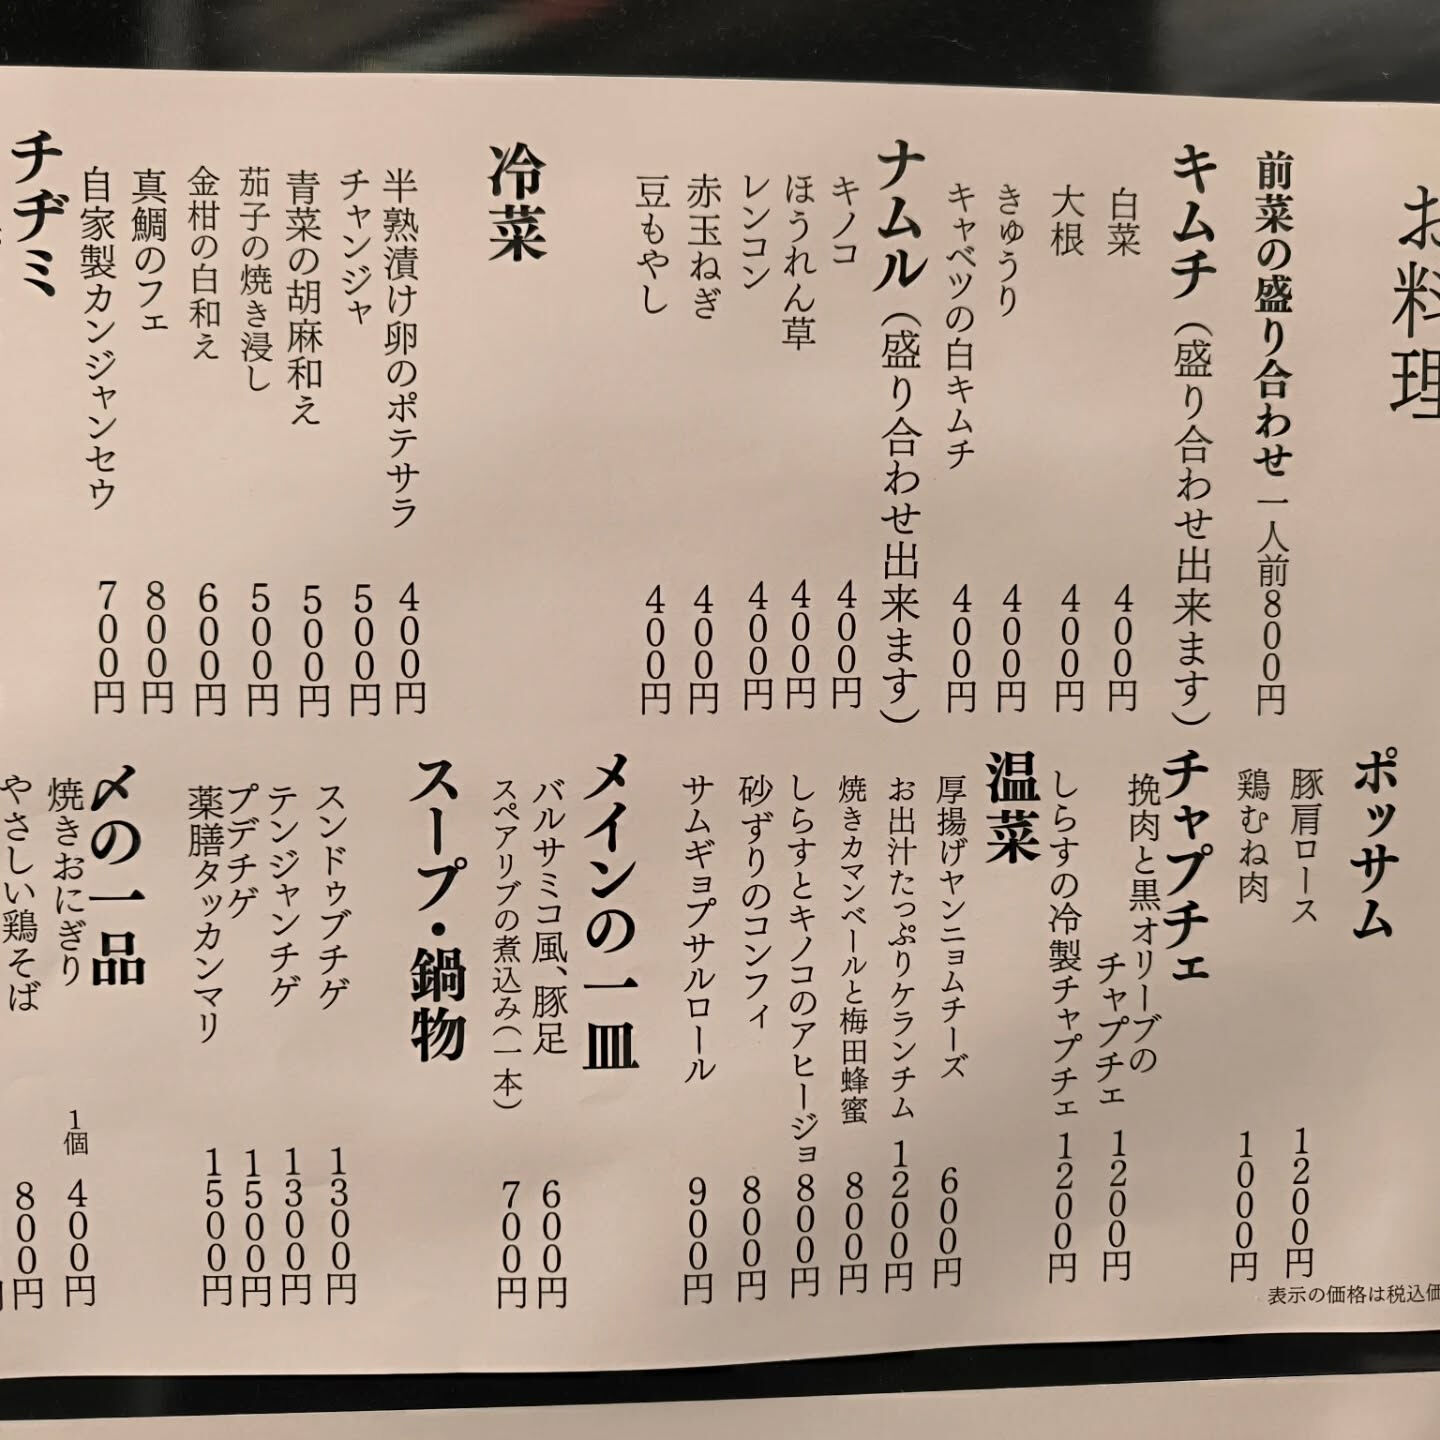 お料理
前菜の盛り合わせ 一人前800円
キムチ（盛り合わせ出来ます）
白菜 400円
大根 400円
きゅうり 400円
キャベツの白キムチ 400円
ナムル（盛り合わせ出来ます）
キノコ 400円
ほうれん草 400円
レンコン 400円
赤玉ねぎ 400円
豆もやし 400円
冷菜
半熟漬け卵のポテサラ 400円
チャンジャ 500円
青菜の胡麻和え 500円
茄子の焼き浸し 500円
金柑の白和え 600円
真鯛のフェ 800円
自家製カンジャンセウ 700円
チヂミ
ポッサム
豚肩ロース 1200円
鶏むね肉 1000円
チャプチェ
挽肉と黒オリーブの
チャプチェ 1200円
しらすの冷製チャプチェ 1200円
温菜
厚揚げヤンニョムチーズ 600円
お出汁たっぷりケランチム 1200円
焼きカマンベールと梅田蜂蜜 800円
しらすとキノコのアヒージョ 800円
砂ずりのコンフィ 800円
サムギョプサルロール 900円
メインの一皿
バルサミコ風、豚足 600円
スペアリブの煮込み（一本） 700円
スープ・鍋物
スンドゥブチゲ 1300円
テンジャンチゲ 1300円
プデチゲ 1500円
薬膳タッカンマリ 1500円
〆の一品
焼きおにぎり 1個 400円
やさしい鶏そば 800円
表示の価格は税込価